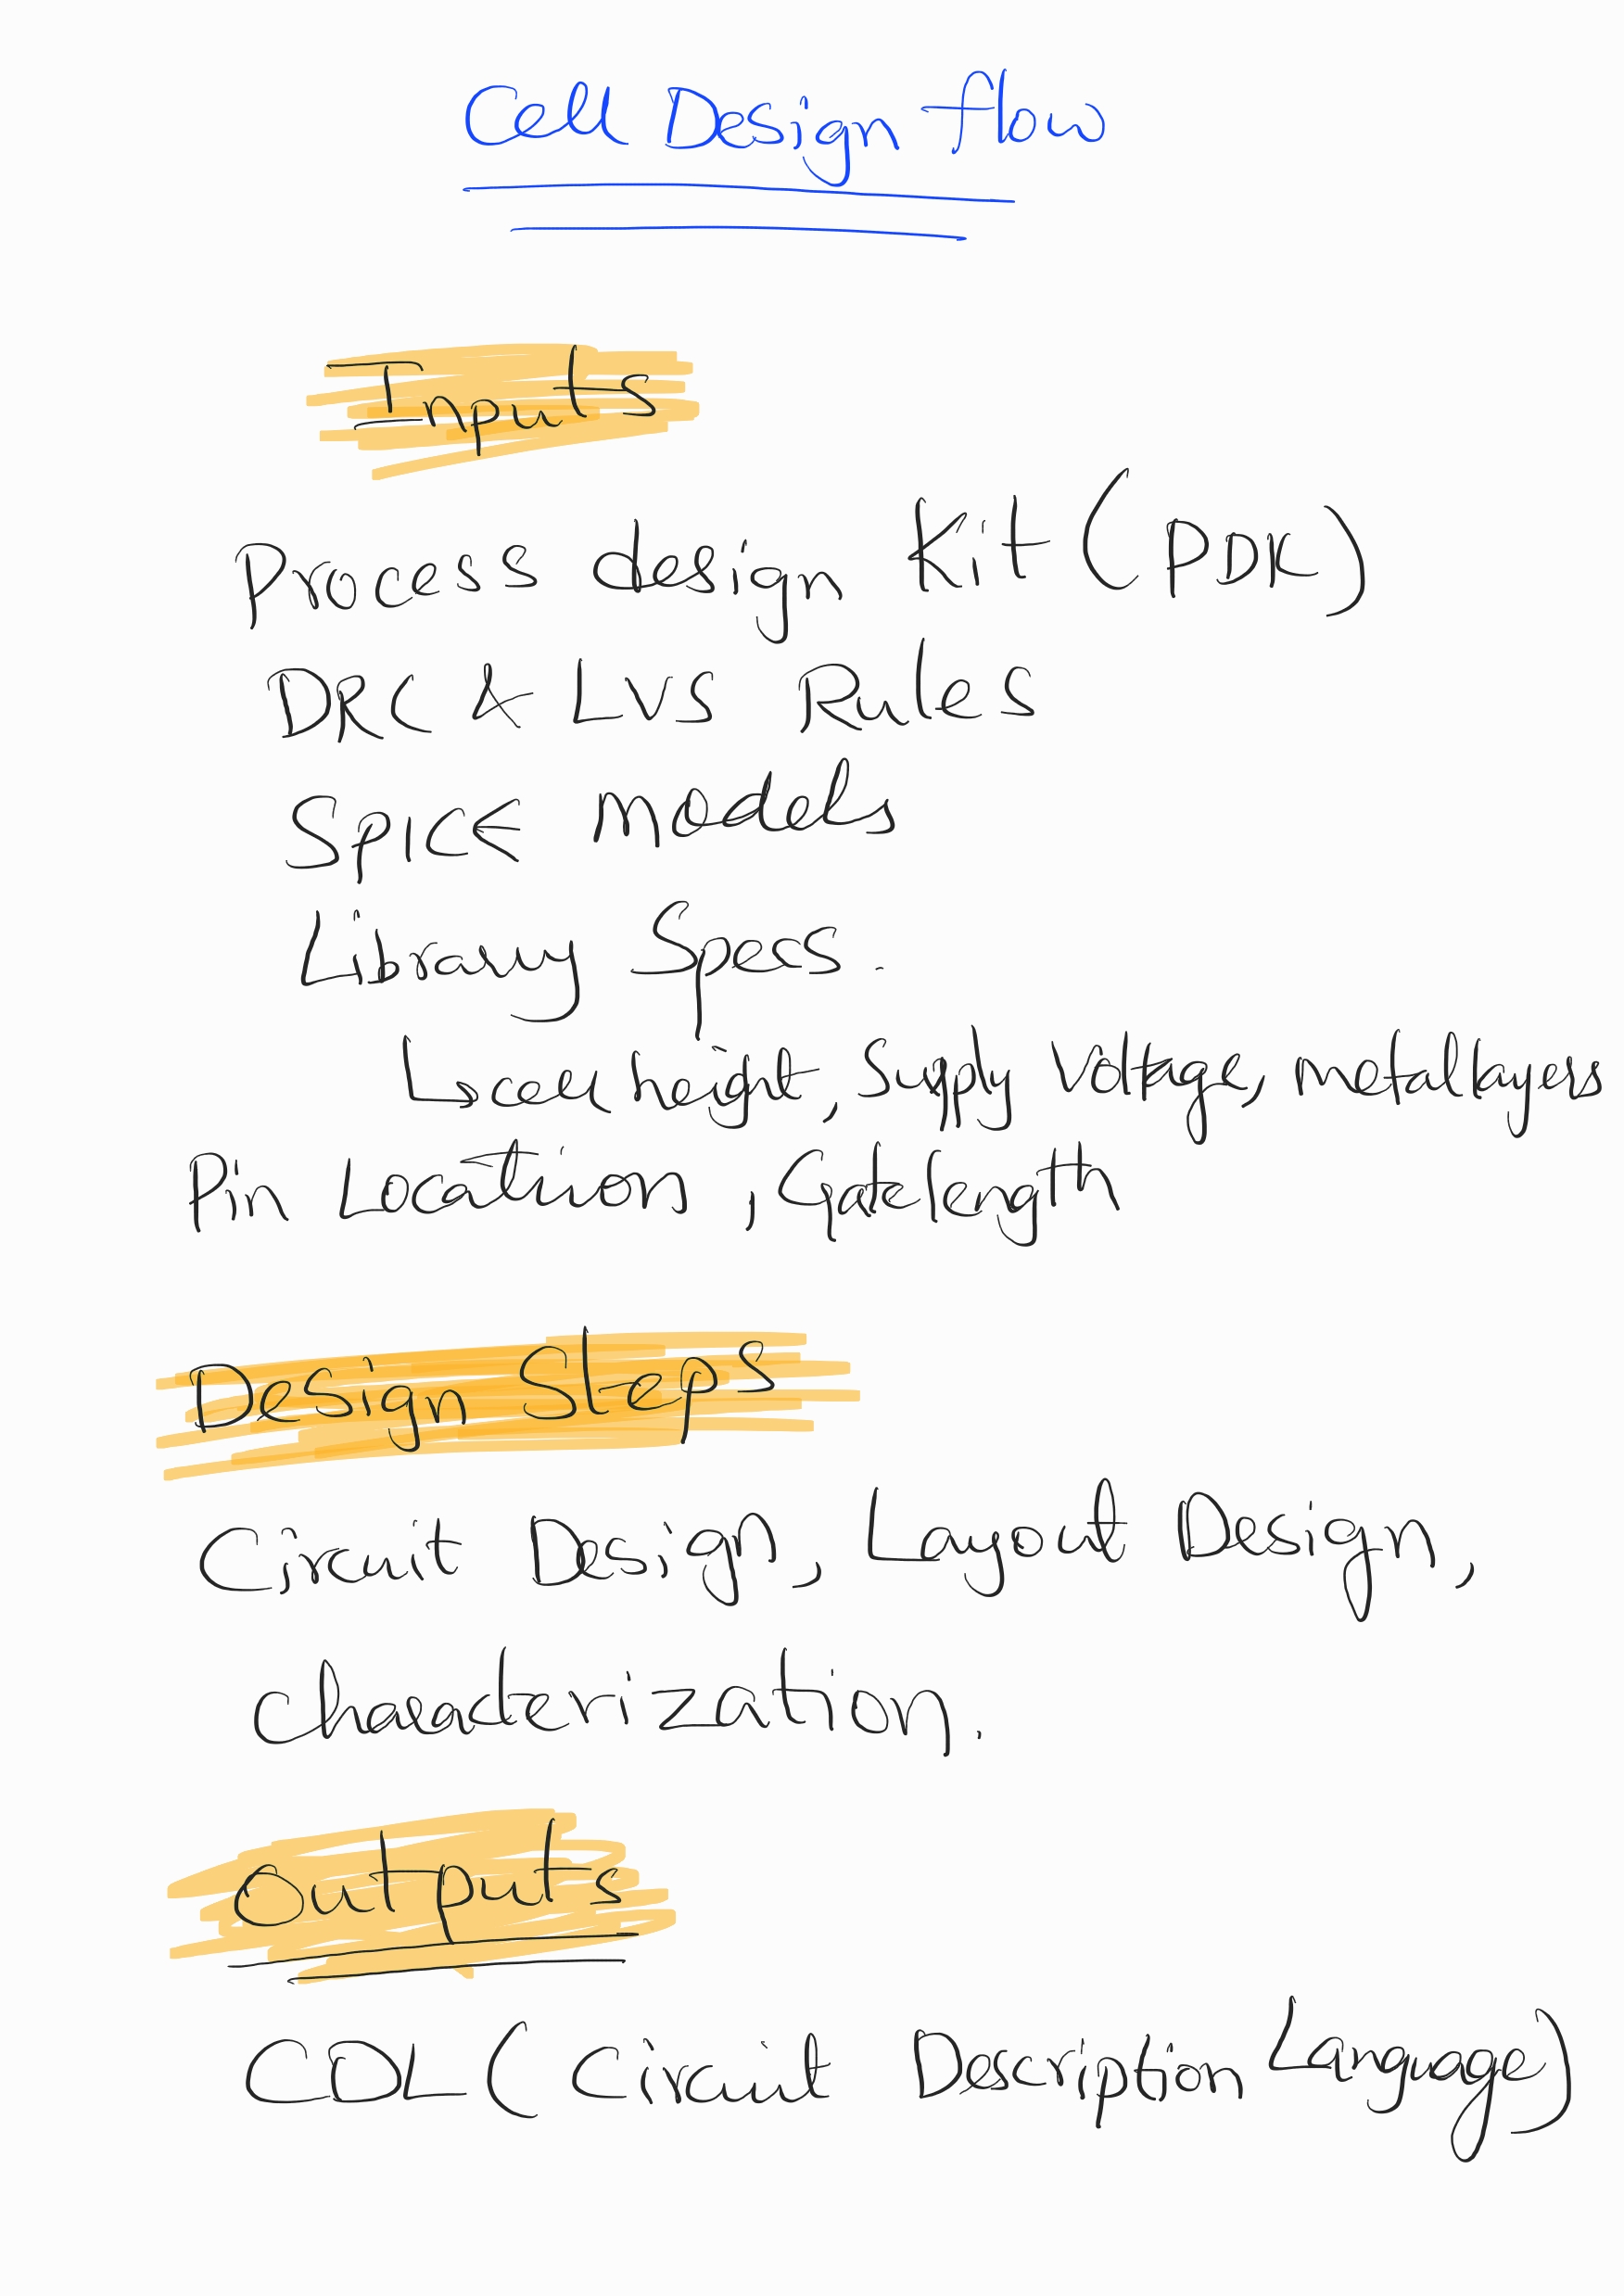 Cell Design flow
Inputs
Process design Kit (PDK)
DRC & LVS Rules
SPICE models
Library Specs.
↳ cell height, Supply Voltage, metal layers
Pin Location, Gate length
Design Steps
Circuit Design, Layout Design,
characterization.
Outputs
CDL (Circuit Description Language)